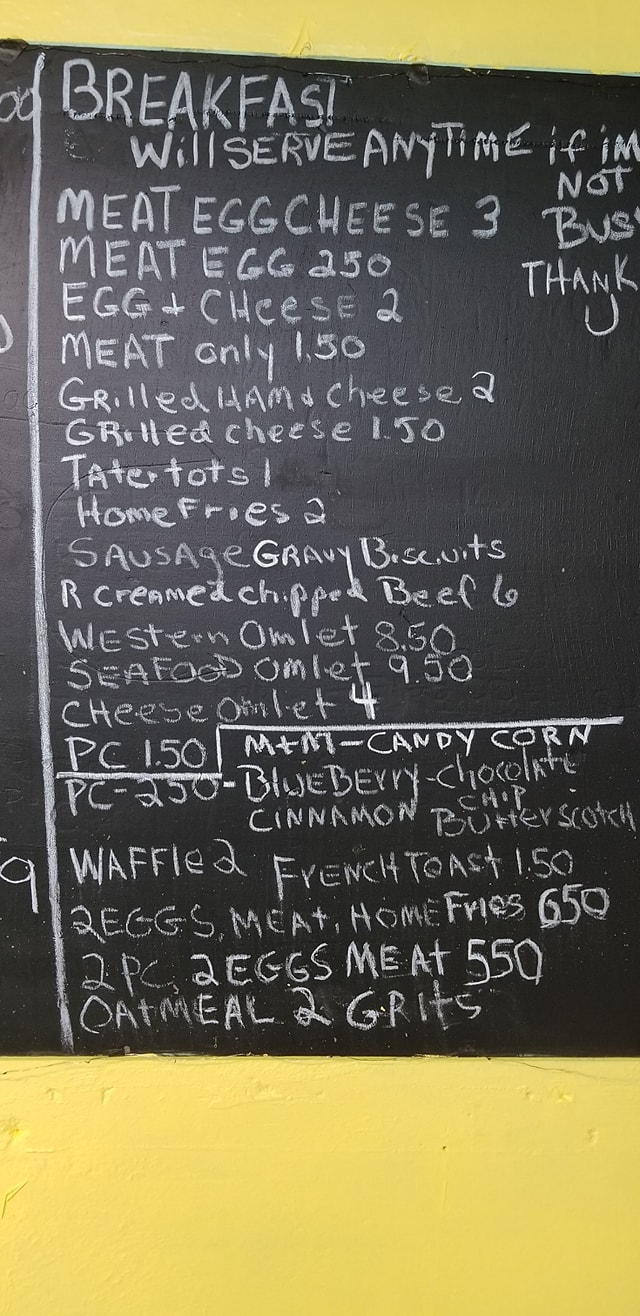 BREAKFAST
Will SERVE ANYTIME if im
NOT
BUSY
THANK
U
MEAT EGG CHEESE 3
MEAT EGG 250
EGG + CHeeSE 2
MEAT only 1.50
GRilled HAM & Cheese 2
GRilled cheese 1.50
TAtertots 1
Home Fries 2
SAUSAge GRAVY Biscuits
R creamed chipped Beef 6
WEStern Omlet 8.50
SEAFOOD Omlet 9.50
CHeese Omlet 4
PC 1.50
M+M-CANDY CORN
PC-250-BlUEBERRY-Chocolate
CHIP
CINNAMON Butterscotch
WAFFle 2 FRENCH TOASt 1.50
2EGGS, MEAt, HOME Fries 650
2 PC, 2EGGS MEAt 550
OAtMEAL 2 GRIts